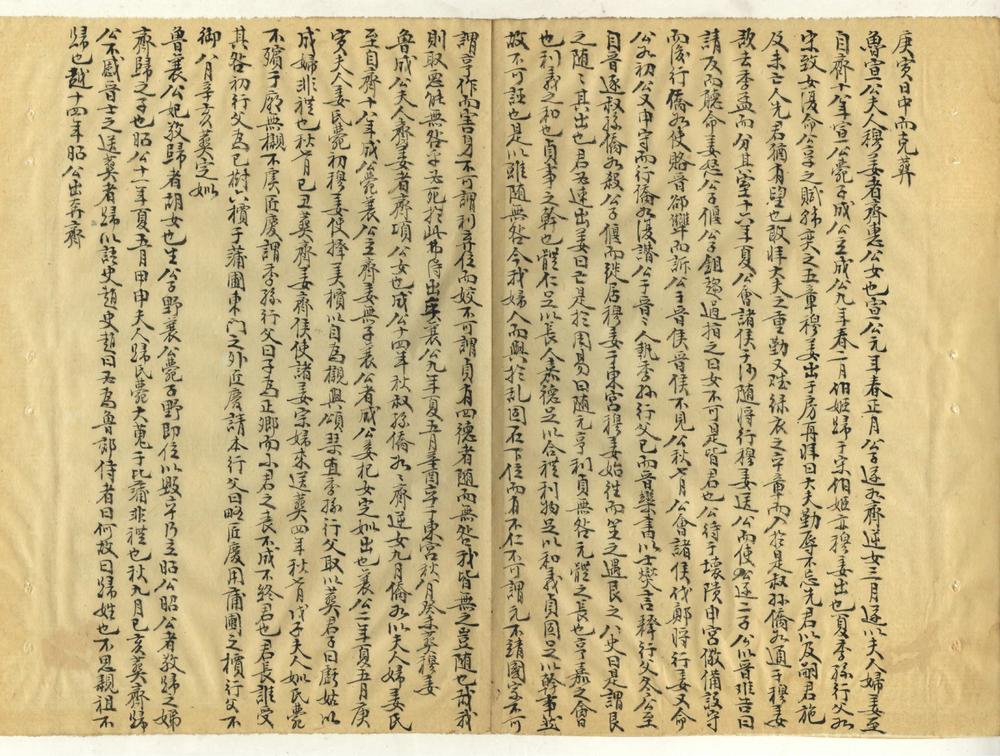 庚寅日中而克葬
魯宣公夫人穆姜者齊惠公女也宣公元年春正月公子遂如齊逆女三月遂以夫人婦姜至
自齊十八年宣公薨子成公立成公九年春二月伯姬歸于宋伯姬亦穆姜出也夏季孫行父如
宋致女復命公享之賦韓奕之五章穆姜出于房再拜曰大夫勤辱不忘先君以及嗣君施
及未亡人先君猶有望也敢拜大夫之重勤又賦綠衣之卒章而入於是叔孫僑如通于穆姜
欲去季孟而分其室十六年夏公會諸侯于沙隨將行穆姜送公而使公逐二子公以晉難告曰
請反而聽命姜怒公子偃公子鉏趨過指之曰女不可是皆君也公待于壞隤申宮儆備設守
而後行僑如使賂晉郤犫而訴公于晉侯晉侯不見公秋七月公會諸侯伐鄭將行姜又命
公如初公又申守而行僑如復譖公于晉〻人執季孫行父已而晉欒書以士燮言釋行父冬公至
自晉逐叔孫僑如殺公子偃而徙居穆姜于東宮穆姜始往而筮之遇艮之八史曰是謂艮
之隨〻其出也君必速出姜曰亡是於周易曰隨元亨利貞無咎元體之長也亨嘉之會
也利義之和也貞事之幹也體仁足以長人嘉德足以合禮利物足以和義貞固足以幹事然
故不可誣也是以雖隨無咎今我婦人而與於乱固在下位而有不仁不可謂元不靖國家不可
謂亨作而害身不可謂利弃位而姣不可謂貞有四德者隨而無咎我皆無之豈隨也哉我
則取惡能無咎乎必死於此弗得出矣襄公九年夏五月辛酉卒于東宮秋八月癸未葬穆姜
魯成公夫人齊姜者齊頃公女也成公十四年秋叔孫僑如〻齊逆女九月僑如以夫人婦姜氏
至自齊十八年成公薨襄公立齊姜無子襄公者成公妾杞女定姒出也襄公二年夏五月庚
寅夫人姜氏薨初穆姜使擇美檟以自為櫬與頌琴直季孫行父取以葬君子曰虧姑以
成婦非禮也秋七月己丑葬齊姜齊侯使諸姜宗婦來送葬四年秋七月戊子夫人姒氏薨
不殯于廟無櫬不虞匠慶謂季孫行父曰子為正卿而小君之喪不成不終君也君長誰受
其咎初行父為己樹六檟于蒲圃東門之外匠慶請木行父曰略匠慶用蒲圃之檟行父不
御八月辛亥葬定姒
魯襄公妃敬歸者胡女也生公子野襄公薨子野即位以毀卒乃立昭公昭公者敬歸之娣
齊歸之子也昭公十一年夏五月甲申夫人歸氏薨大蒐于比蒲非禮也秋九月己亥葬齊歸
公不慼晉士之送葬者歸以語史趙史趙曰必為魯郊侍者曰何故曰歸姓也不思親祖不
歸也越十四年昭公出奔齊